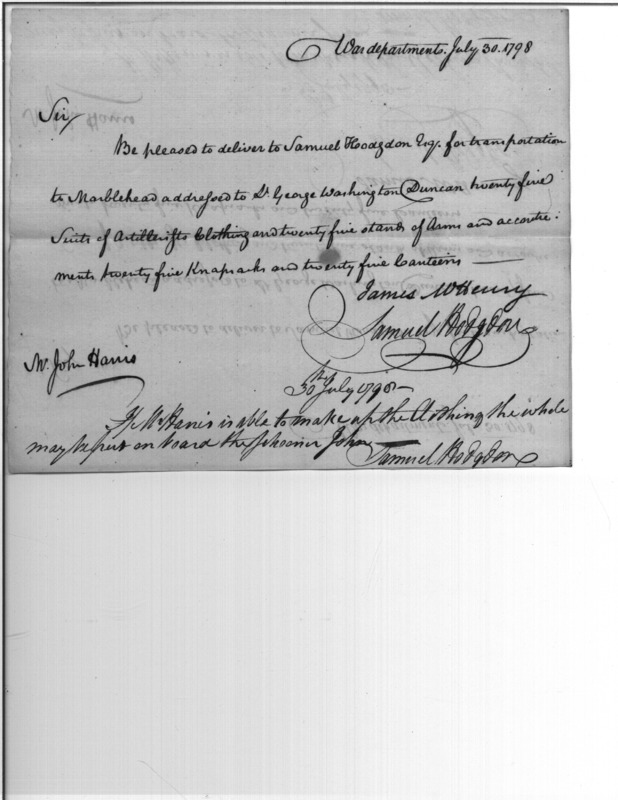 War department. July 30. 1798
Sir,
Be pleased to deliver to Samuel Hodgdon Esq. for transportation
to Marblehead addressed to Dr George Washington Duncan twenty five
Suits of Artillerists Clothing and twenty five stands of Arms and accoutre:
ments twenty five Knapsacks and twenty five Canteens —
James McHenry
Samuel Hodgdon
Mr. John Harris
30th July 1798 —
If Mr Harris is able to make up the Clothing the whole
may be put on board the schooner John
Samuel Hodgdon